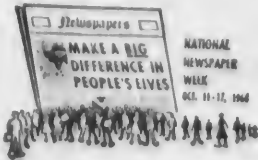 Newspapers
MAKE A BIG
DIFFERENCE IN
PEOPLE'S LIVES
NATIONAL
NEWSPAPER
WEEK
OCT. 11-17,